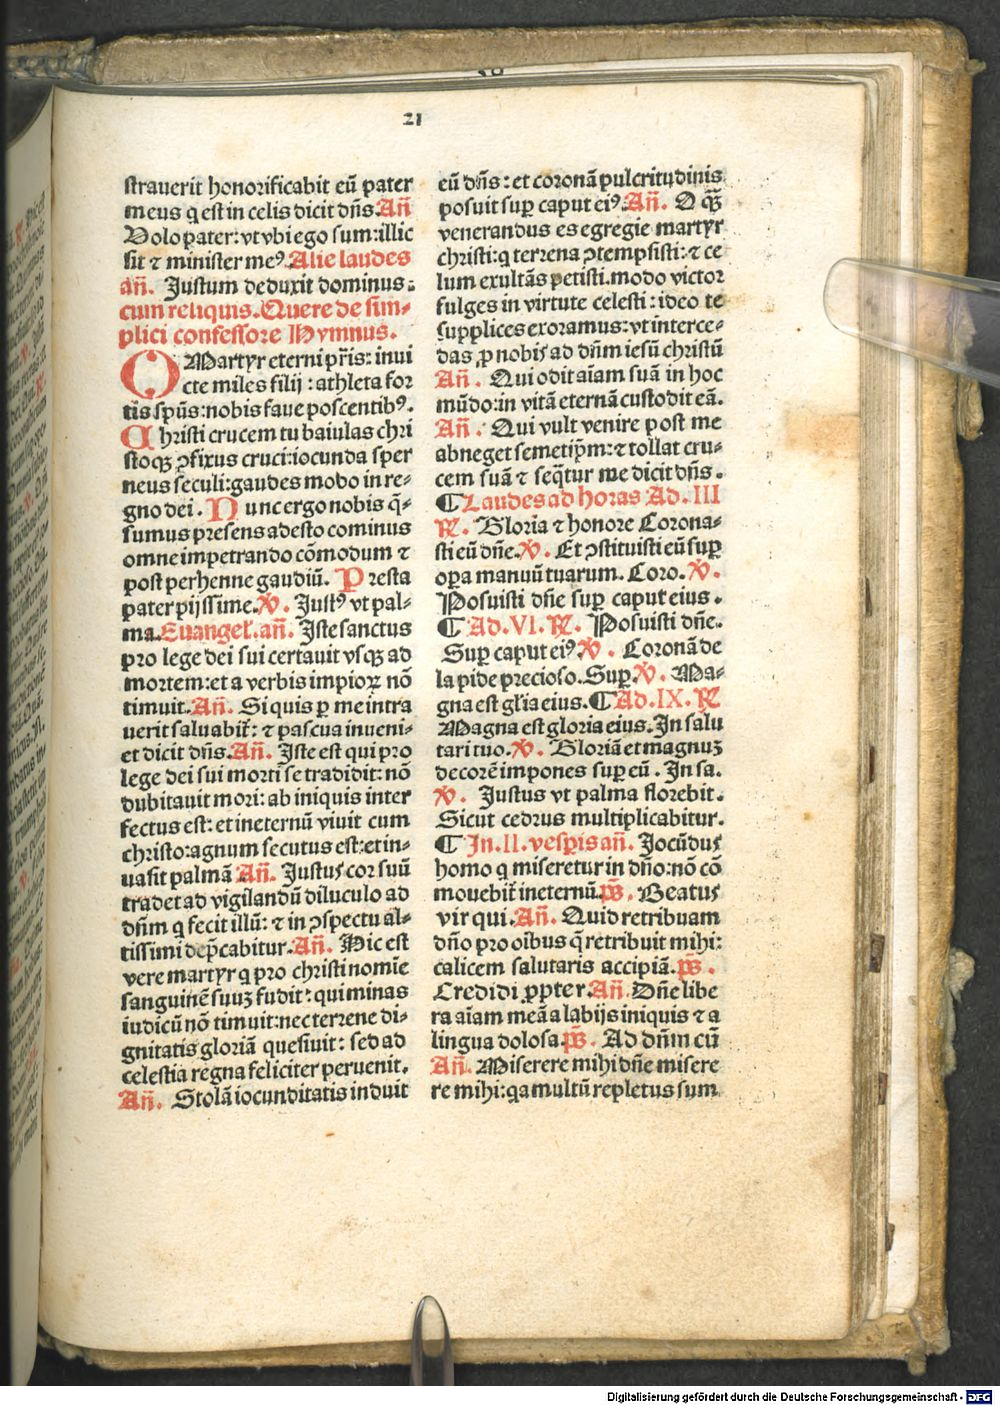 21
strauerit honorificabit eũ pater
meus q est in celis dicit dñs. Añ
Volo pater: vt vbi ego sum: illic
sit ⁊ minister meꝰ. Alie laudes
añ. Justum deduxit dominus:
cum reliquis. Quere de sim⸗
plici confessore Hymnus.
O Martyr eterni pr̃is: inui
cte miles filij: athleta for
tis spũs: nobis faue poscentibꝰ.
Christi crucem tu baiulas chri
stoqꝫ ↄfixus cruci: iocunda sper
neus seculi: gaudes modo in re⸗
gno dei. Nunc ergo nobis q̃⸗
sumus presens adesto cominus
omne impetrando cõmodum ⁊
post perhenne gaudiũ. Presta
pater pijssime. ℣. Justꝰ vt pal⸗
ma. Euangel̃. añ. Iste sanctus
pro lege dei sui certauit vsqꝫ ad
mortem: et a verbis impioꝝ nõ
timuit. Añ. Si quis ꝑ me intra
uerit saluabit̃: ⁊ pascua inueni⸗
et dicit dñs. Añ. Iste est qui pro
lege dei sui morti se tradidit: nõ
dubitauit mori: ab iniquis inter
fectus est: et ineternũ viuit cum
christo: agnum secutus est: et in⸗
uasit palmã Añ. Justus cor suũ
tradet ad vigilandũ diluculo ad
dñm q fecit illũ: ⁊ in ↄspectu al⸗
tissimi dep̃cabitur. Añ. Hic est
vere martyr q pro christi nomĩe
sanguinẽ suuꝫ fudit: qui minas
iudicũ nõ timuit: nec terrene di⸗
gnitatis gloriã quesiuit: sed ad
celestia regna feliciter peruenit.
Añ. Stolã iocunditatis induit
eũ dñs: et coronã pulcritudinis
posuit suꝑ caput eiꝰ. Añ. O qꝫ̃
venerandus es egregie martyr
christi: q terrena ↄtempsisti: ⁊ ce
lum exultãs petisti. modo victor
fulges in virtute celesti: ideo te
supplices exoramus: vt interce⸗
das ꝓ nobis ad dñm iesũ christũ
Añ. Qui odit aĩam suã in hoc
mũdo: in vitã eternã custodit eã.
Añ. Qui vult venire post me
abneget semetip̃m: ⁊ tollat cru⸗
cem suã ⁊ seq̃tur me dicit dñs.
¶ Laudes ad horas Ad. III
℟. Gloria ⁊ honore Corona⸗
sti eũ dñe. ℣. Et ↄstituisti eũ suꝑ
oꝑa manuũ tuarum. Coro. ℣.
Posuisti dñe suꝑ caput eius.
¶ Ad. VI. ℟. Posuisti dñe.
Suꝑ caput eiꝰ. ℣. Coronã de
lapide precioso. Suꝑ. ℣. Ma⸗
gna est gl̃ia eius. ¶ Ad. IX. ℟
Magna est gloria eius. In salu
tari tuo. ℣. Gloriã et magnuꝫ
decorẽ impones suꝑ eũ. In sa.
℣. Justus vt palma florebit.
Sicut cedrus multiplicabitur.
¶ In. II. vesꝑis añ. Jocũdus
homo q miseretur in dño: nõ cõ
mouebit̃ ineternũ. p̃s. Beatus
vir qui. Añ. Quid retribuam
dño pro oĩbus q̃ retribuit mihi:
calicem salutaris accipiã. p̃s.
Credidi ꝓpter. Añ. Dñe libe
ra aĩam meã a labijs iniquis ⁊ a
lingua dolosa. p̃s. Ad dñm cũ
Añ. Miserere mihi dñe misere
re mihi: qa multũ repletus sum
Digitalisierung gefördert durch die Deutsche Forschungsgemeinschaft - DFG